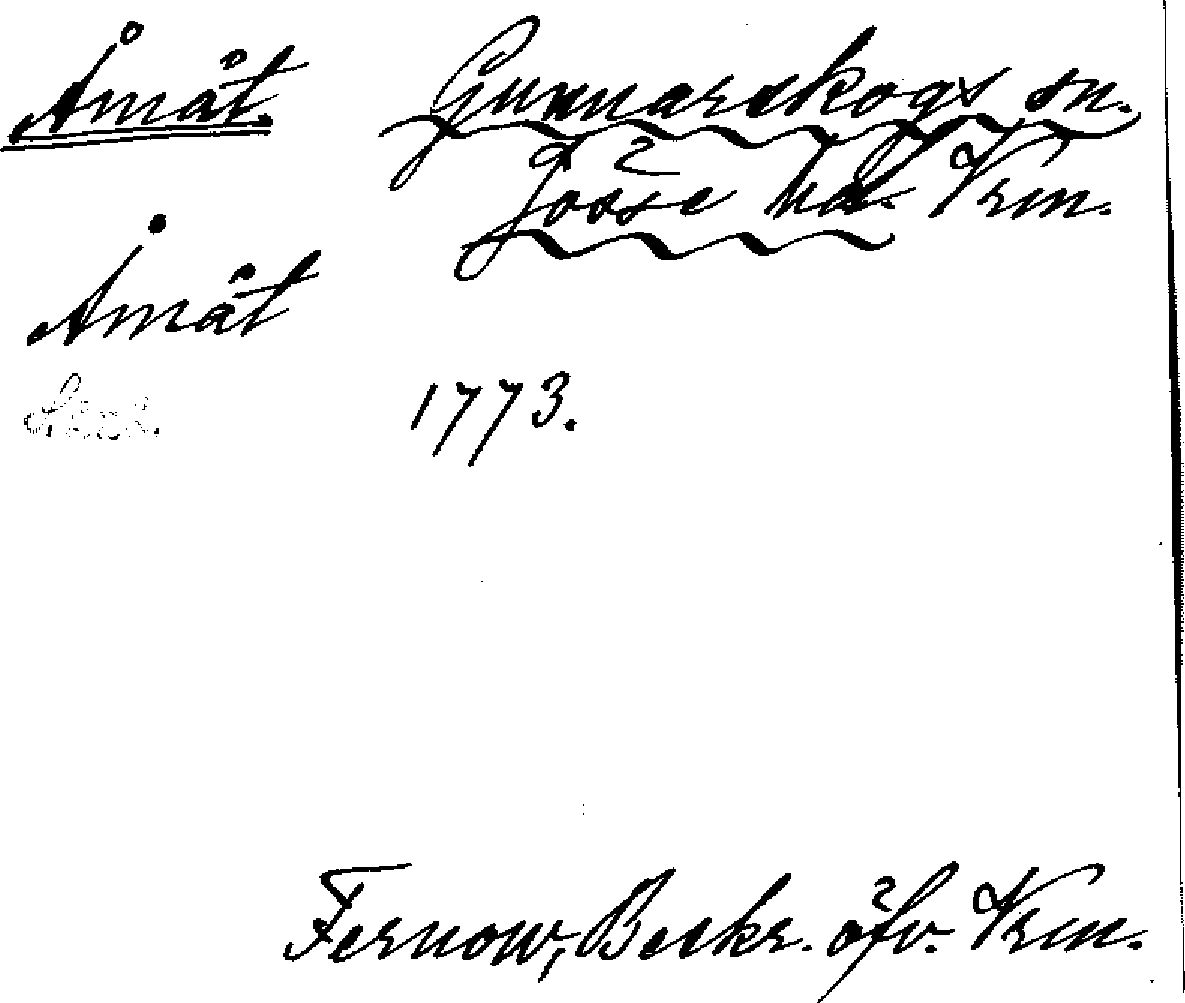 Åmåt. Gunnarskogs sn.
Jösse hd. Vrm.
Åmåt
1773.
Fernow, Beskr. öfv. Vrm.